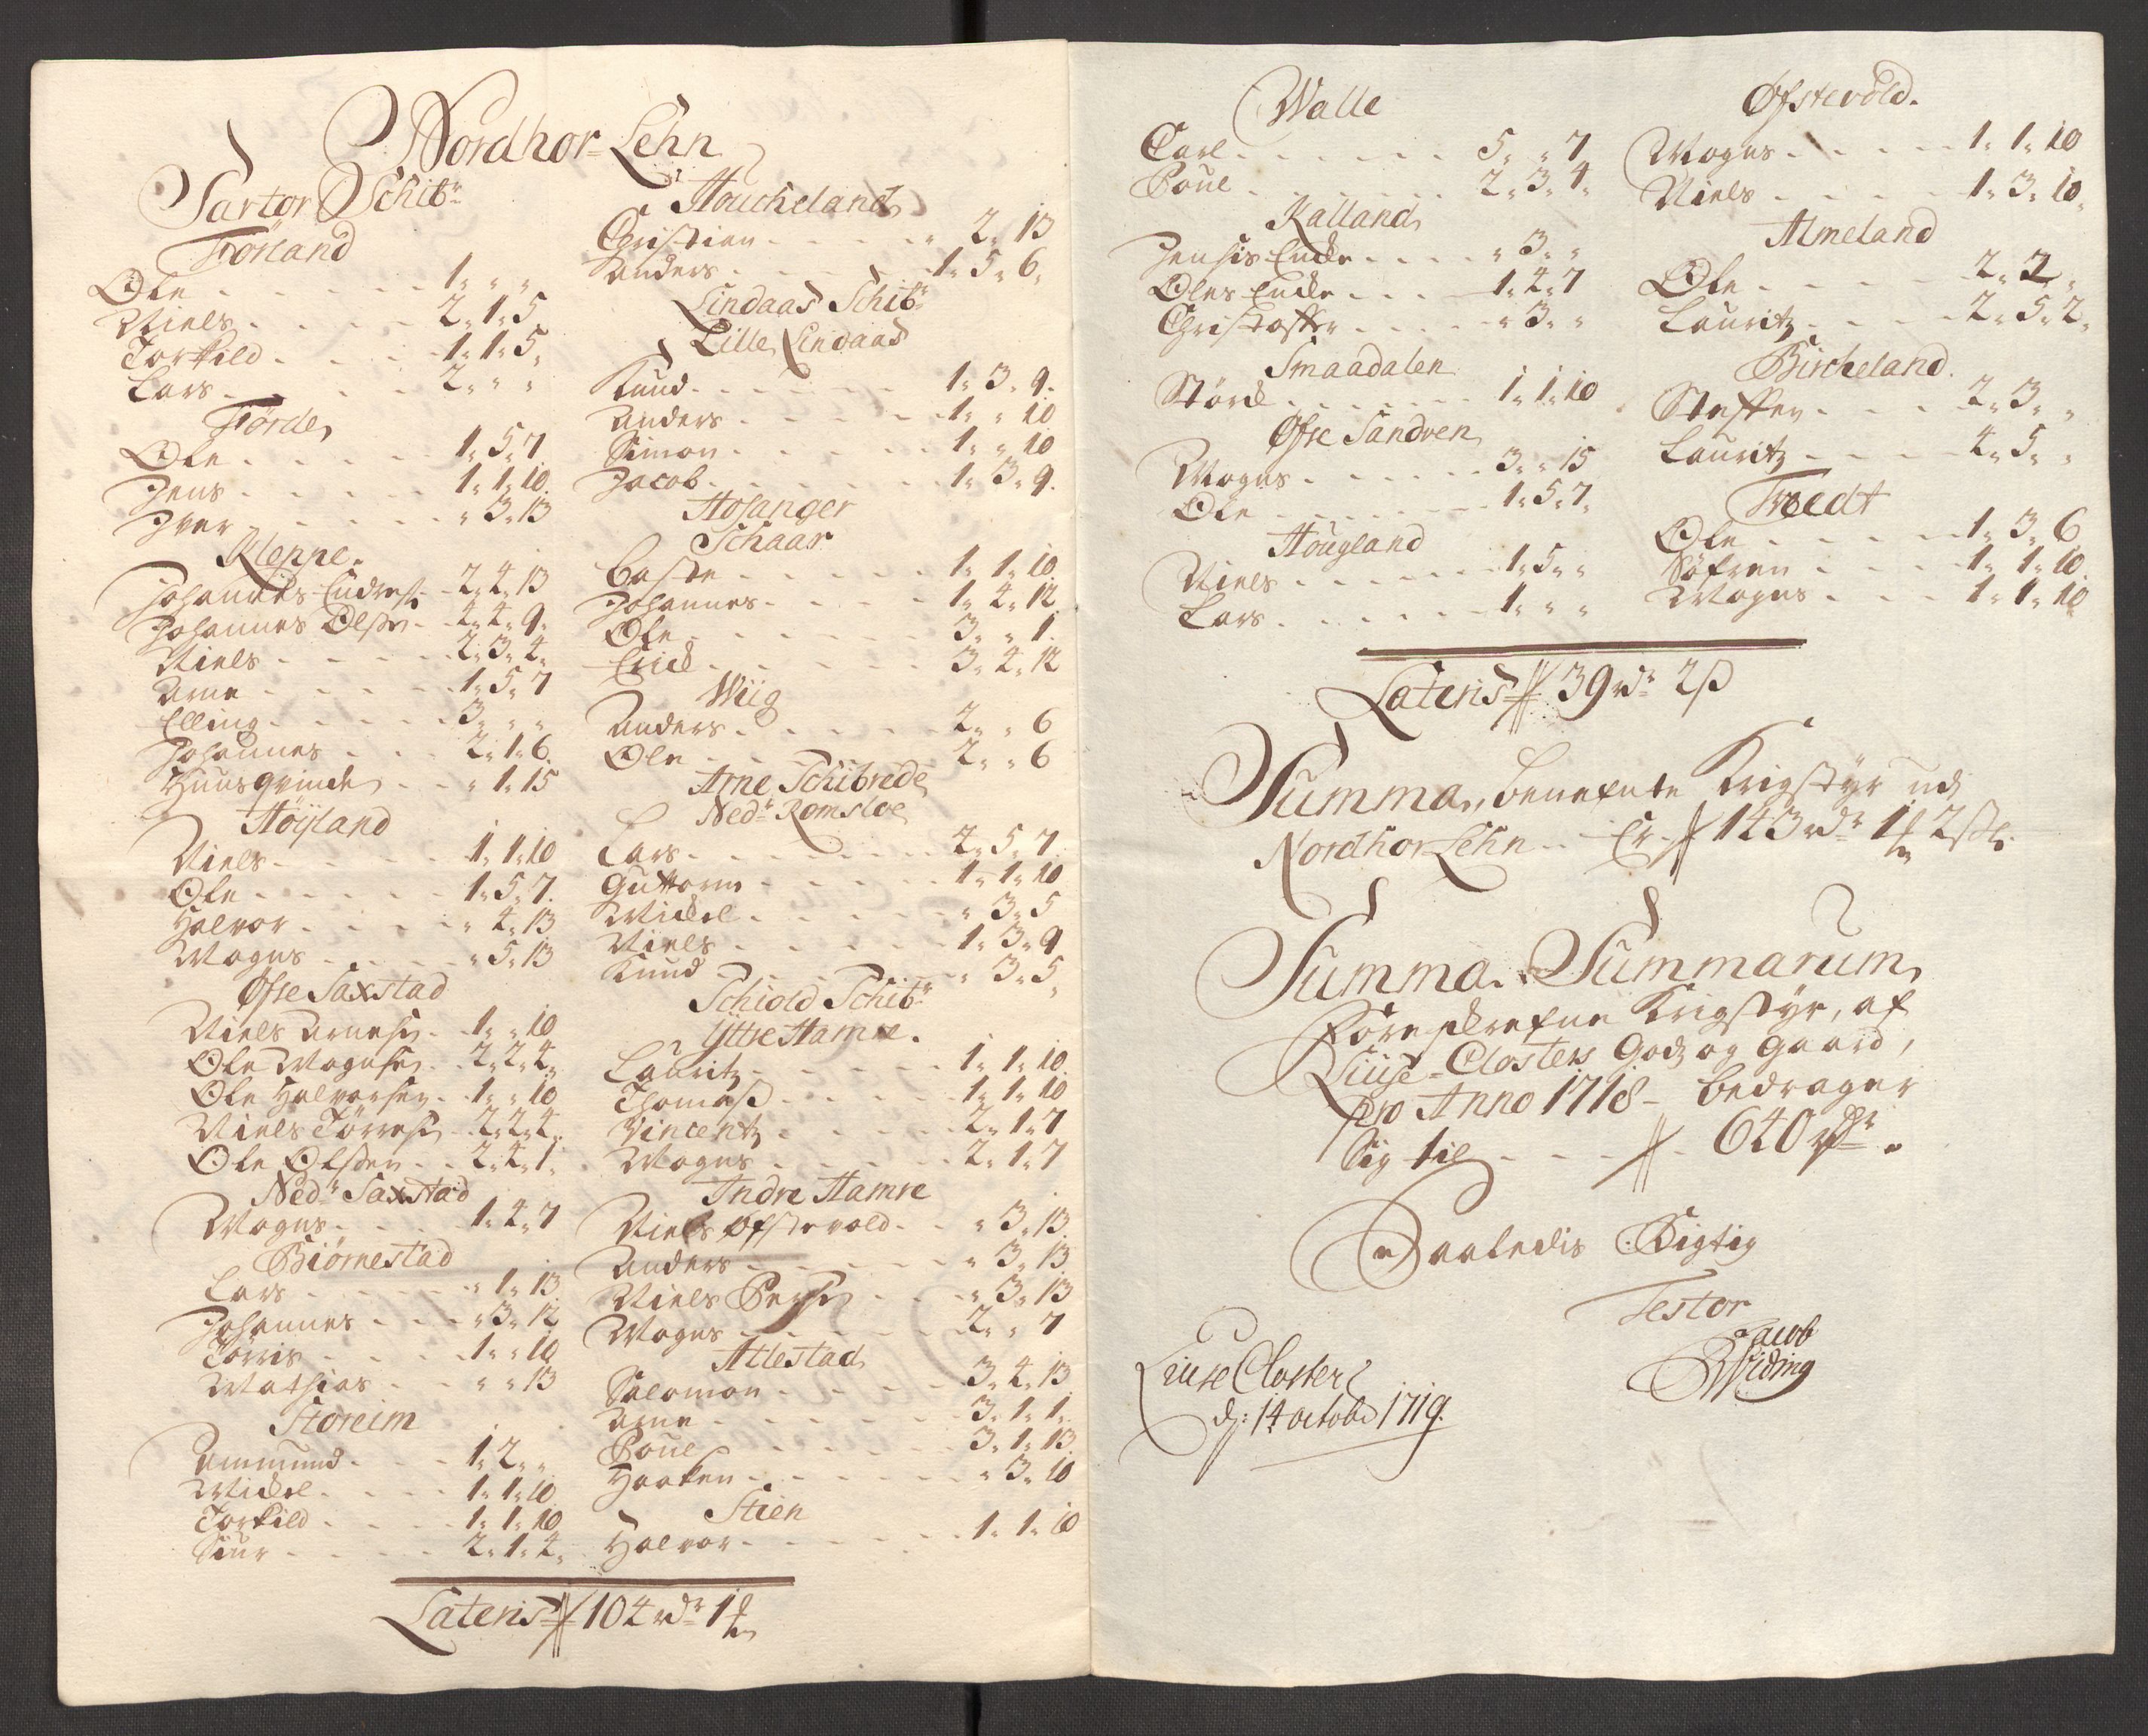 Nordhor Lehn
Sartor Schibr
Førland
Ole - - - - 1 " "
Niels - - - - 2 " 1 " 5
Torkild - - - - 1 " 1 " 5
Lars - - - - 2 " " "
Førde
Ole - - - - 1 " 5 " 7
Jens - - - - 1 " 1 " 10
Iver - - - - " 3 " 13
Kleppe
Johannes Endresn - 2 " 4 " 13
Johannes Olsen - 4 " 4 " 9
Niels - - - - 2 " 3 " 4
Arne - - - - 1 " 5 " 7
Elling - - - - 3 " " "
Johannes - - - 2 " 1 " 6
Huusqvinde - - " 1 " 15
Høyland
Niels - - - - 1 " 1 " 10
Ole - - - - 1 " 5 " 7
Halvor - - - - " 4 " 13
Mogns - - - - " 5 " 13
Øfse Saxstad
Niels Arnesn - 1 " " 10
Ole Mognsen - 2 " 2 " 4
Ole Halvorsen - 1 " " 10
Niels Tørresn - 2 " 2 " 4
Ole Olsen - - 2 " 4 " 1
Nedr Saxstad
Mogns - - - - 1 " 4 " 7
Biørnestad
Lars - - - - " 1 " 13
Johannes - - - " 3 " 12
Tørris - - - - 1 " " 10
Mathias - - " " 13
Storeim
Ammund - - - 1 " 2 " "
Mickel - - - - 1 " 1 " 10
Torkild - - - - 1 " 1 " 10
Siur - - - - 2 " 1 " 4
Houcheland
Christian - - - - " 2 " 13
Anders - - - - 1 " 5 " 6
Lindaas Schibr
Lille Lindaas
Knud - - - - 1 " 3 " 9
Anders - - - - 1 " " 10
Simon - - - - 1 " " 10
Jacob - - - - 1 " 3 " 9
Hosanger
Schaar
Baste - - - - 1 " 1 " 10
Johannes - - - - 1 " 4 " 12
Ole - - - - 3 " " 1
Erick - - - - 3 " 4 " 12
Wiig
Anders - - - - 2 " " 6
Ole - - - - 2 " " 6
Arne Schibrede
Nedr Romsloe
Lars - - - - 2 " 5 " 7
Guttorm - - - - 1 " 1 " 10
Mickel - - - - " 3 " 5
Niels - - - - 1 " 3 " 9
Knud - - - - " 3 " 5
Schiold Schibr
Yttre Hamre
Lauritz - - - - 1 " 1 " 10
Thomas - - - - 1 " 1 " 10
Vincentz - - - - 2 " 1 " 7
Mogns - - - - 2 " 1 " 7
Indre Hamre
Niels Øfstevold - - " 3 " 13
Anders - - - - " 3 " 13
Niels Persn - - - " 3 " 13
Mogns - - - - 2 " " 7
Atlestad
Salomon - - - - 3 " 4 " 13
Arne - - - - 3 " 1 " 1
Poul - - - - 3 " 1 " 13
Haaken - - - - " 3 " 10
Stien
Halvor - - - - 1 " 1 " 10
Lateris 104 rdr 1
Walle
Carl - - - - 5 " " 7
Poul - - - - 2 " 3 " 4
Kalland
Jensis Encke - - - - " 3 " "
Oles Encke - - - 1 " 4 " 7
Christoffer - - - - " 3 " "
Smaadalen
Størck - - - - 1 " 1 " 10
Øfse Sandven
Mogns - - - - 3 " " 15
Ole - - - - 1 " 5 " 7
Hougland
Niels - - - - 1 " 5 " "
Lars - - - - 1 " " "
Øfstevold.
Mogns - - - - 1 " 1 " 10
Niels - - - - 1 " 3 " 10
Almeland
Ole - - - - 2 " 2 "
Lauritz - - - - 2 " 5 " 2
Bircheland.
Steffen - - - 2 " 3 " "
Lauritz - - - - 4 " 5 " "
Tvedt
Ole - - - - 1 " 3 " 6
Søfren - - - - 1 " 1 " 10
Mogns - - - 1 " 1 " 10
Lateris 39 rdr 2 ß
Summa, benefnte Krigstyr udj
Nordhor Lehn - Er 143 rdr 1 2 ß
Summa Summarum
Foreskrefne Krigstyr, af
Liuse-Closters Godz og Gaard,
pro Anno 1718 - bedrager
Sig til - - - 640 rdr.
Saaledis Rigtig
Testor
Jacob
Widing
Liuse Closter
dj: 14 octobr 1719.